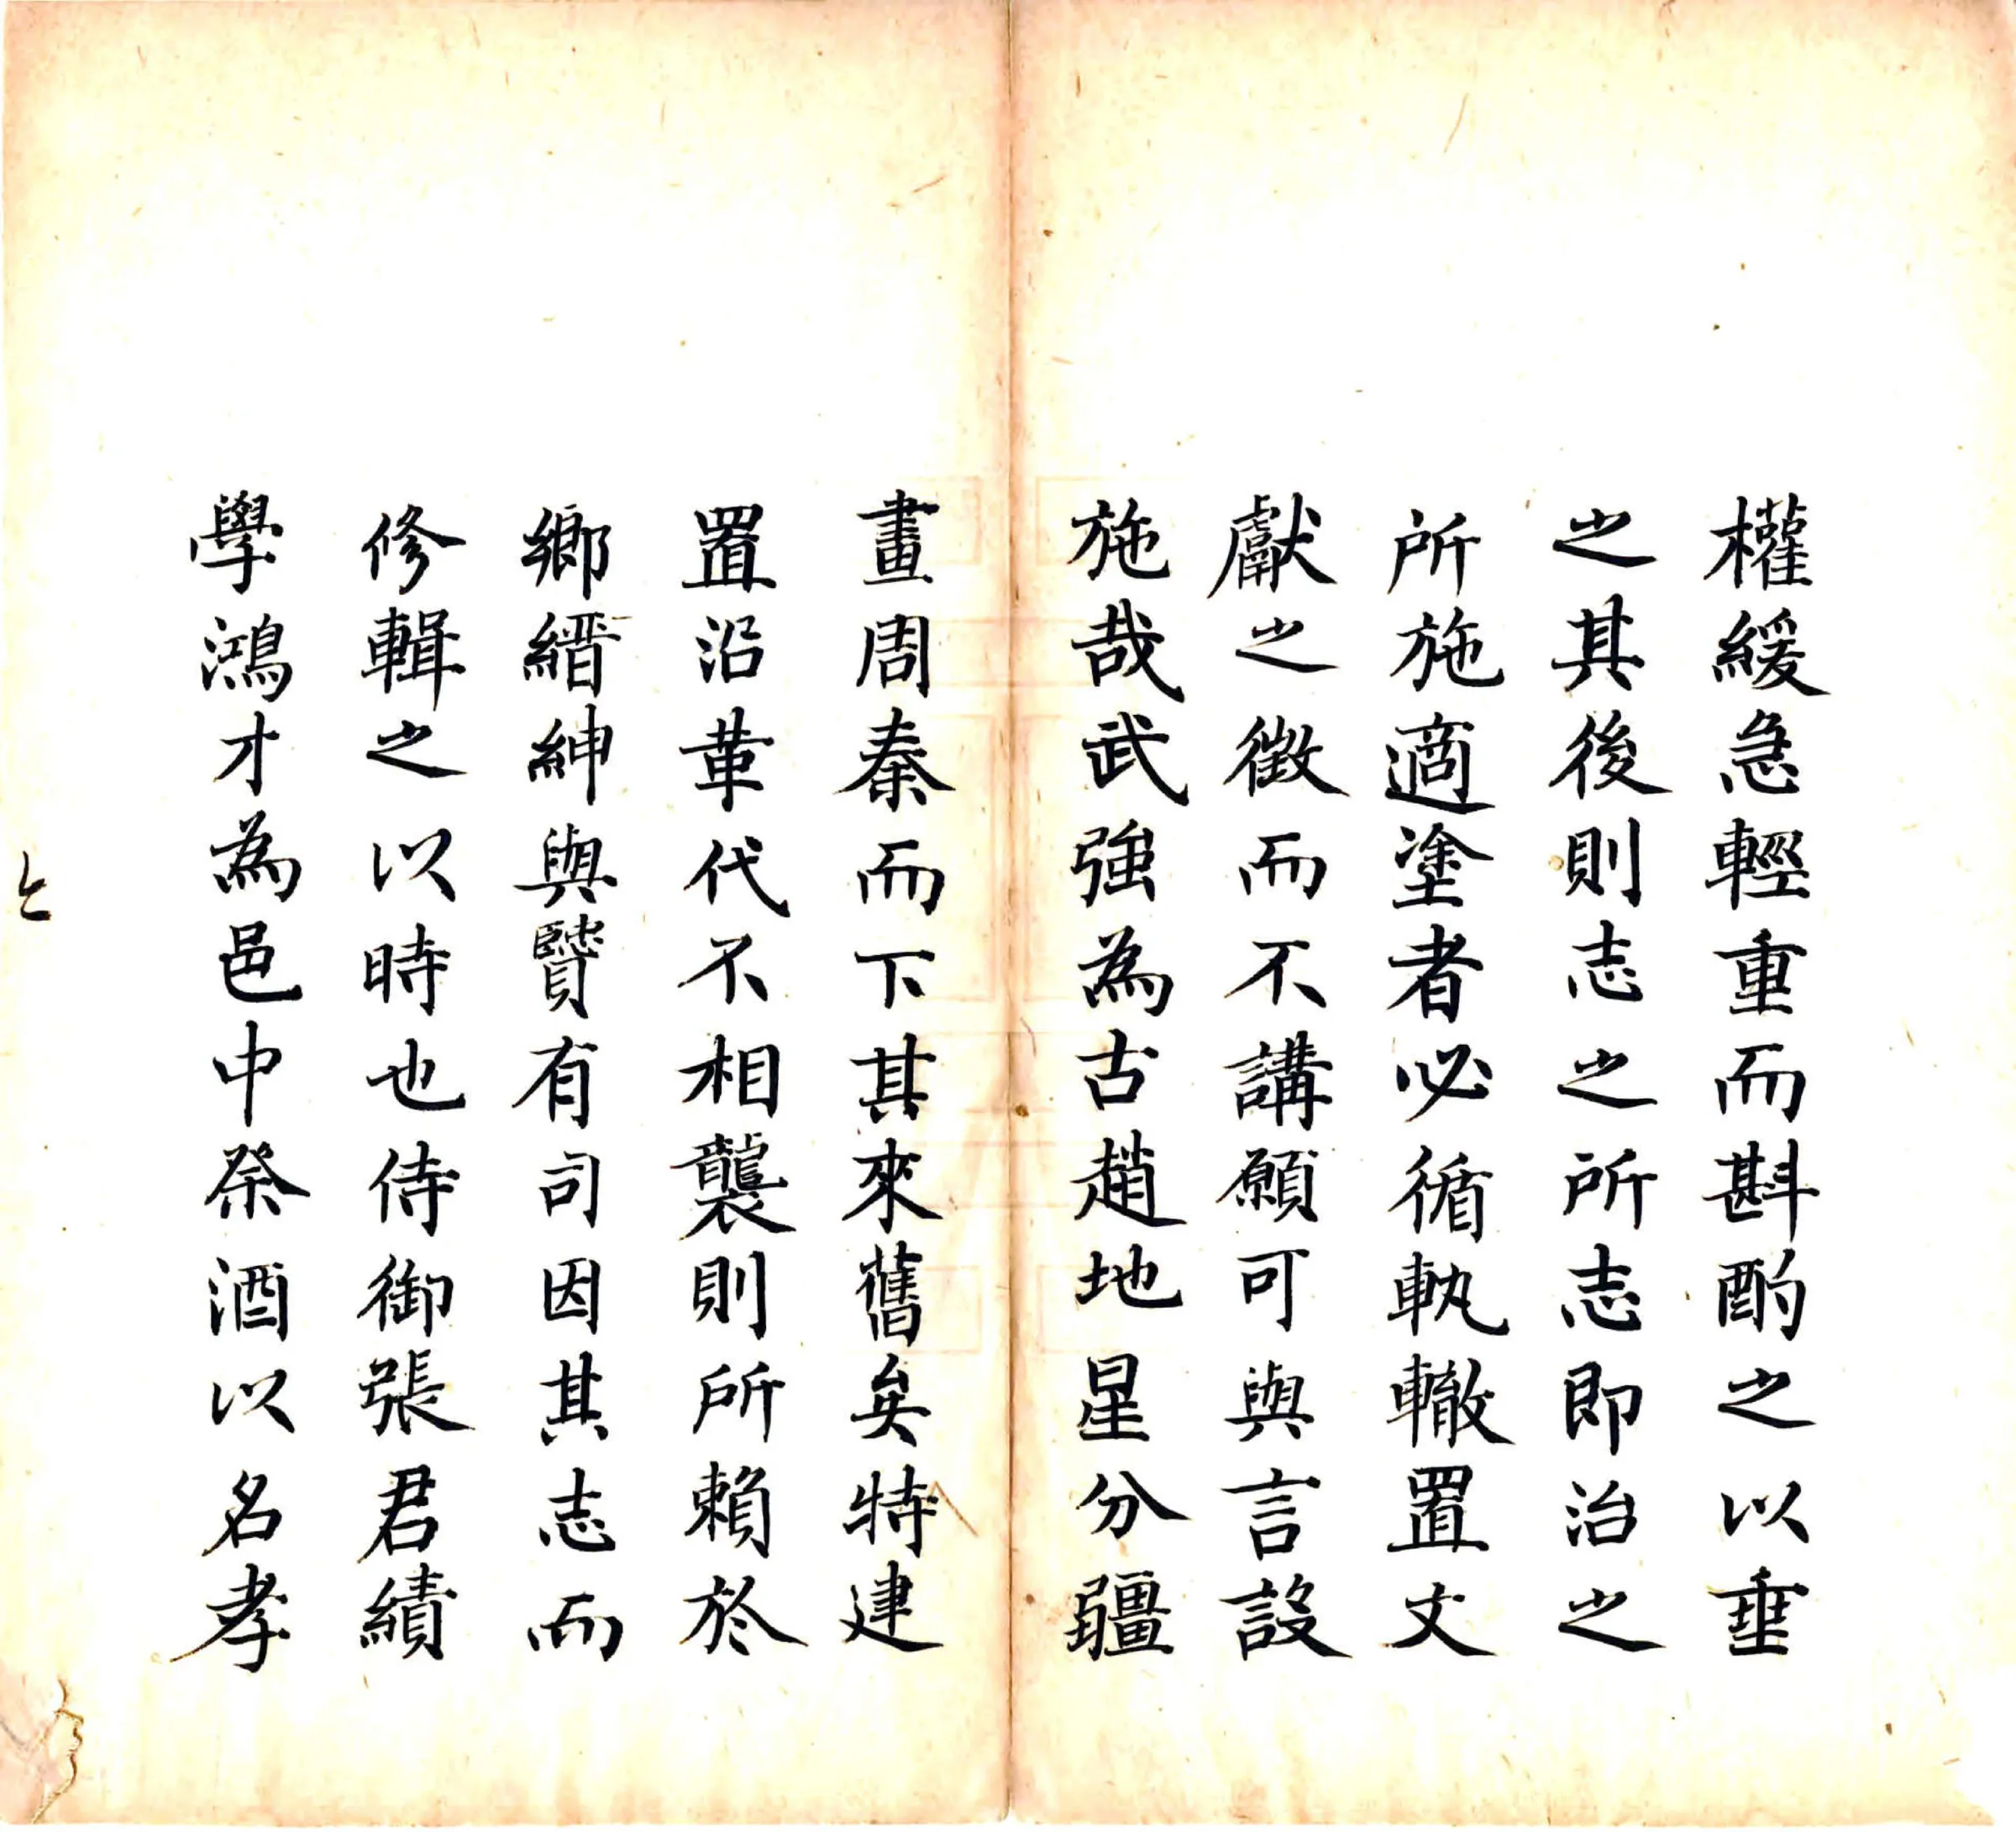 權緩急輕重而斟酌之以垂
之其後則志之所志即治之
所施適塗者必循軌轍置文
獻之徵而不講顧可與言設
施哉武強為古趙地星分疆
畫周秦而下其來舊矣特建
置沿革代不相襲則所賴於
鄉縉紳與賢有司因其志而
修輯之以時也侍御張君績
學鴻才為邑中祭酒以名孝